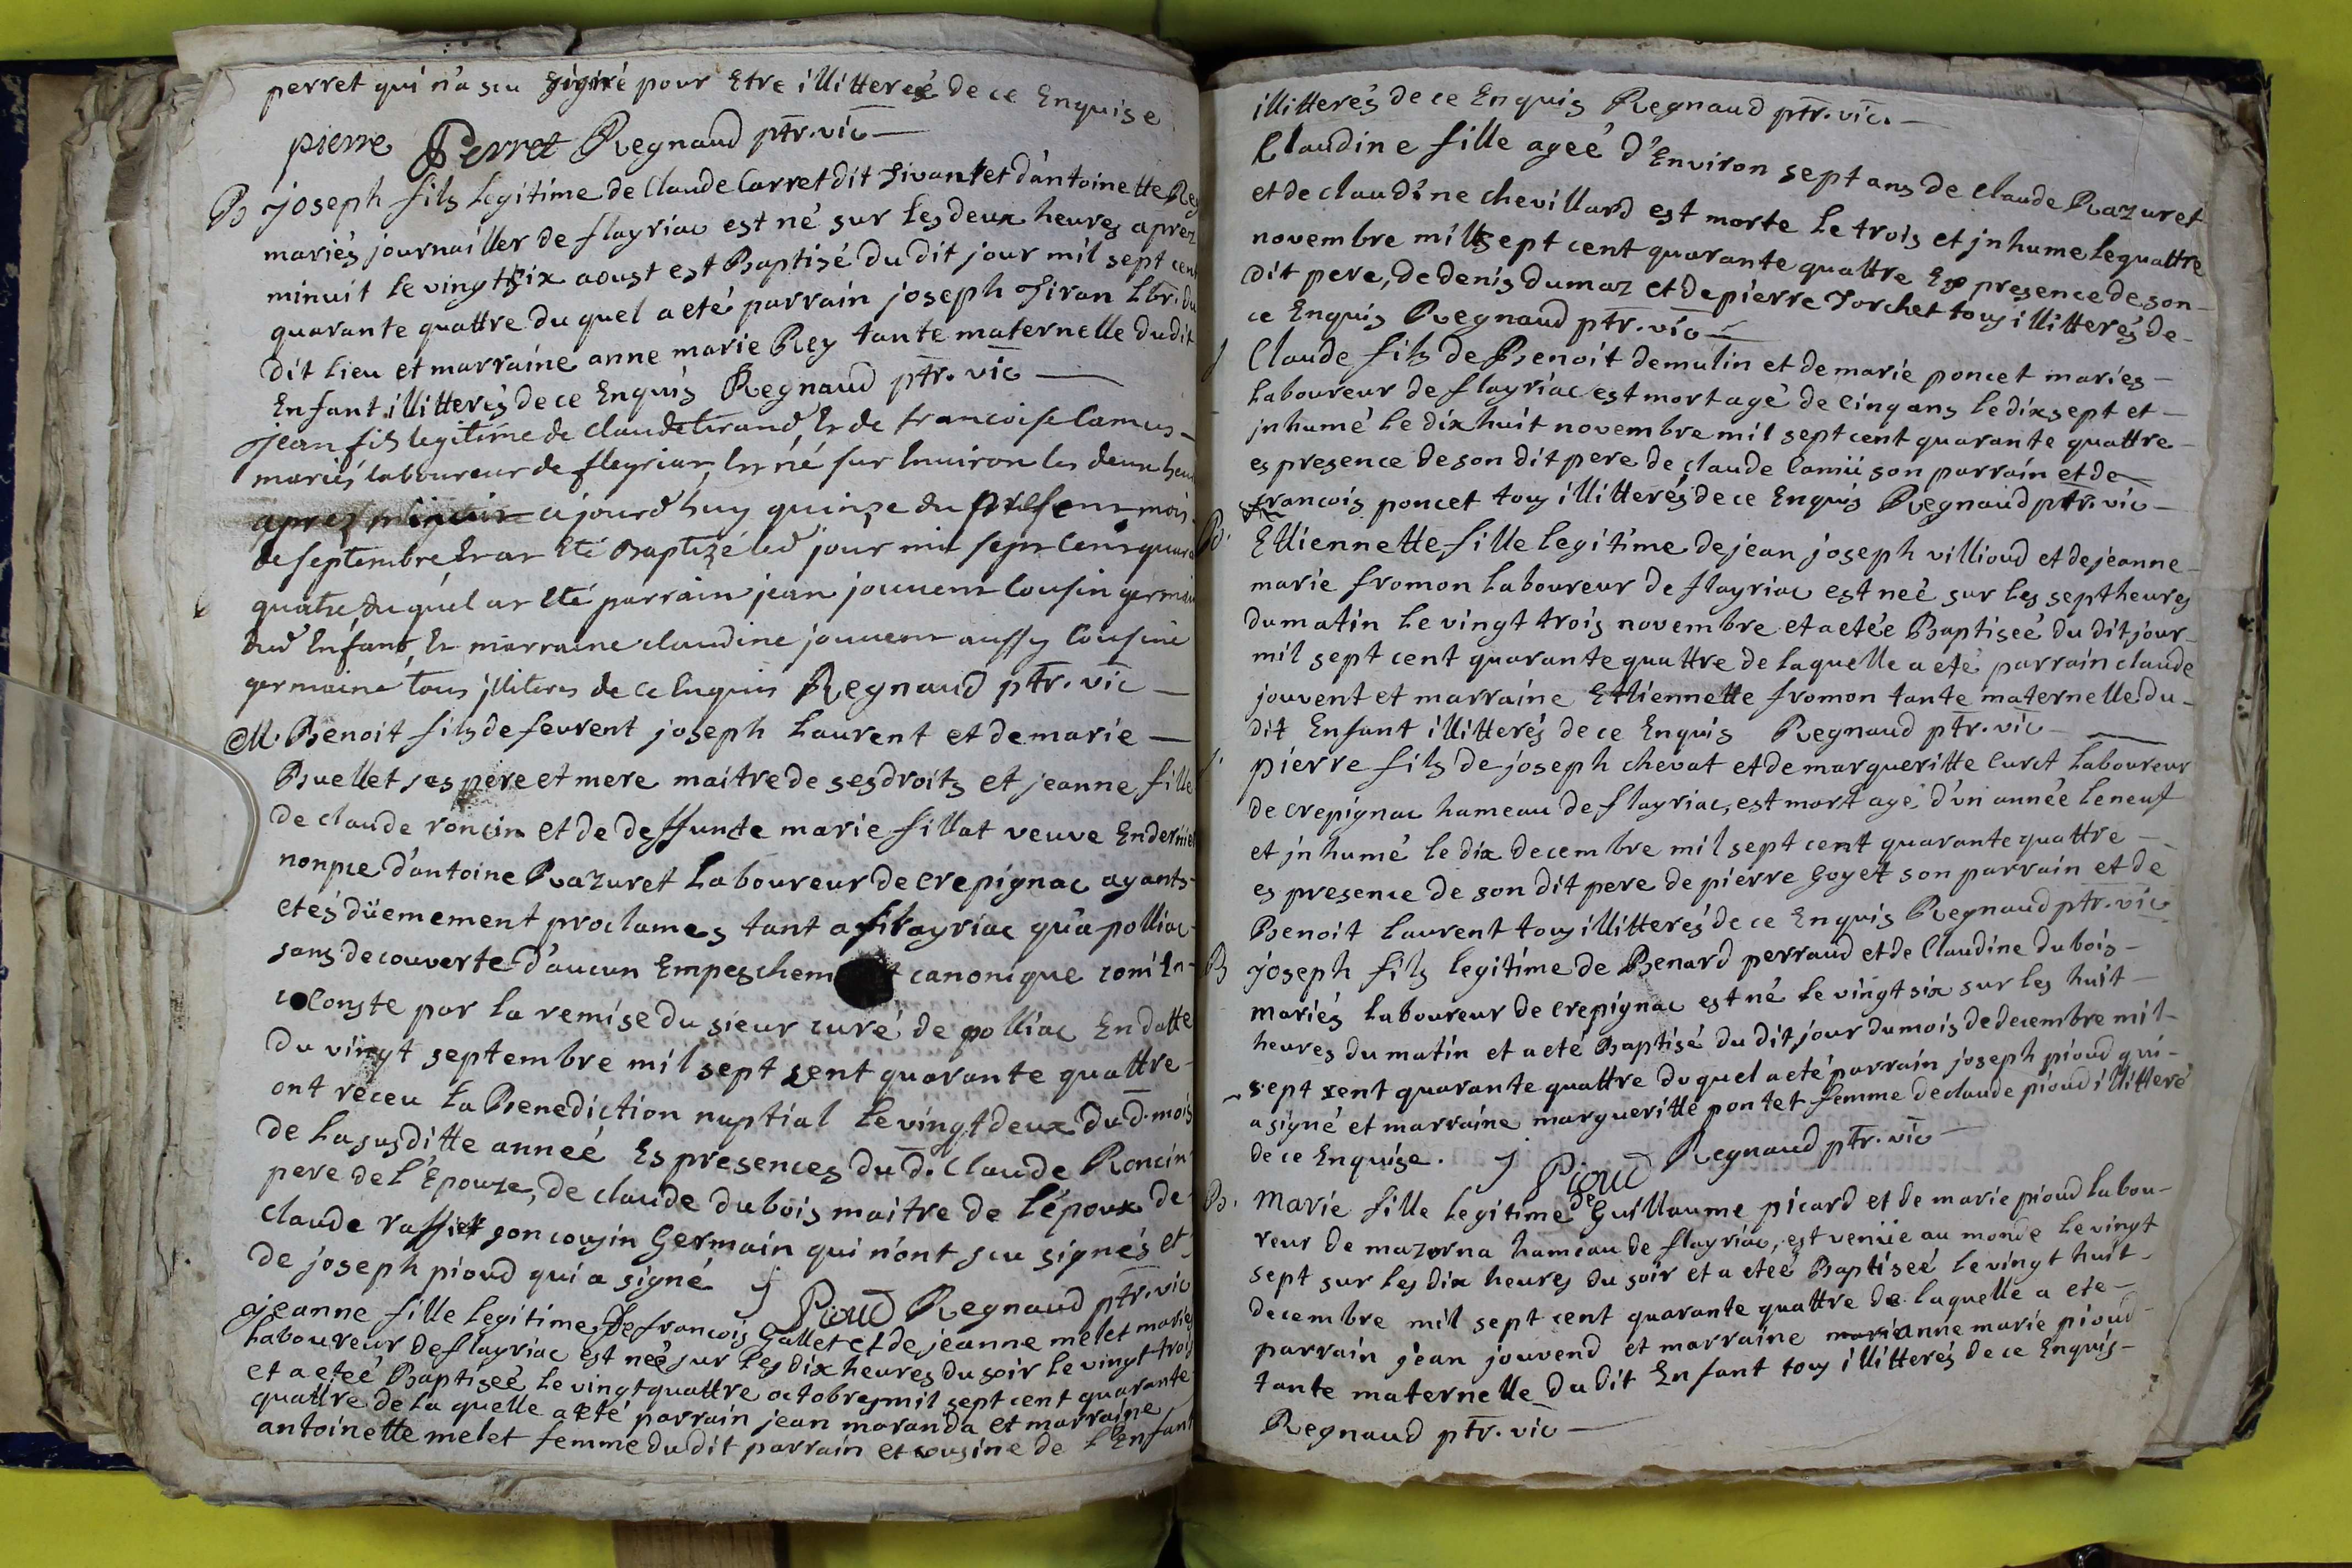 perret qui n'a scu signé pour Etre illitteré de ce Enquise
pierre Perret Regnaud ptr. vic
B joseph fils legitime de Claude Carret dit et d'antoinette Rey
mariés journailler de flayriac est né sur les deux heures aprez
minuit le vingt six aoust est Baptisé du dit jour mil sept cent
quarante quattre du quel a eté parrain joseph Lbr. du
dit lieu et marraine anne marie Rey tante maternelle du dit
Enfant illitterés de ce Enquis Regnaud ptr. vic
jean fils legitime de claude Et de francoise Camus
mariés laboureur de fleyriac Est né sur Environ les deux heu
aprez ajourd'huy quinze du present mois
de septembre Et at Eté Baptizé led jour mil sept Cent quara
quatre, duquel at Eté parrain jean jouvent Cousin germain
dud Enfant, Et marraine claudine jouvent aussy Cousine
germaine tous jlliteres de ce Enquis Regnaud ptr. vic
M. Benoit fils de feurent joseph Laurent et de marie
Buellet ses pere et mere maitre de ses droits et jeanne fille
de claude roncin et de deffunte marie fillat veuve En dernier
nopce d'antoine Razuret Laboureur de crepignac ayants
etés düemement proclames tant a flayriac qu'a polliac
sans decouverte d'aucun Empeschement canonique comi En
Conste par la remise du sieur curé de polliac En datte
du vingt septembre mil sept cent quarante quattre
ont receu la Benediction nuptial le vingt deux du d. mois
de la susditte anneé Es presences du d. Claude Roncin
pere de l'Epouze, de claude dubois maitre de l'époux de
claude raffiet son cousin Germain qui n'ont scu signés et
de joseph pioud qui a signé
j Pioud Regnaud ptr. vic
jeanne fille legitime de francois Gallet et de jeanne melet mariés
Laboureur de flayriac est neé sur les dix heures du soir le vingt trois
et a eteé Baptiseé le vingt quattre octobre mil sept cent quarante
quattre de la quelle a eté parrain jean maranda et marraine
antoinette melet femme du dit parrain et cousine de l'Enfant
illitterés de ce Enquis Regnaud ptr. vic.
Claudine fille ageé d'Environ sept ans de Claude Razuret
et de claudine chevillard est morte le trois et jnhume le quattre
novembre mil sept cent quarante quattre Es presence de son
dit pere, de denis dumaz et de pierre Torchet tous illitterés de
ce Enquis Regnaud ptr. vic
Claude fils de Benoit demulin et de marie poncet mariés
Laboureur de flayriac est mort agé de Cinq ans le dix sept et
jnhumé le dix huit novembre mil sept cent quarante quattre
es presence de son dit pere de claude son parrain et de
francois poncet tous illitterés de ce Enquis Regnaud ptr. vic
B. Etiennette fille legitime de jean joseph villioud et de jeanne
marie fromon Laboureur de flayriac est neé sur les sept heures
du matin le vingt trois novembre et a etée Baptiseé du dit jour
mil sept cent quarante quattre de laquelle a eté parrain claude
jouvent et marraine Etiennette fromon tante maternelle du
dit Enfant illitterés de ce Enquis Regnaud ptr. vic
pierre fils de joseph chevat et de margueritte Curet Laboureur
de crepignac hameau de flayriac, est mort agé d'un année le neuf
et jnhumé le dix decembre mil sept cent quarante quattre
es presence de son dit pere de pierre Goyet son parrain et de
Benoit Laurent tous illitterés de ce Enquis Regnaud ptr. vic
B joseph fils legitime de Benard perraud et de Claudine dubois
mariés laboureur de crepignac est né le vingt six sur les huit
heures du matin et a eté Baptisé du dit jour du mois de decembre mil
sept cent quarante quattre duquel a eté parrain joseph pioud qui
a signé et marraine margueritte pontet femme de claude pioud illitteré
de ce Enquise. j Pioud Regnaud ptr. vic
B. Marie fille legitime de Guillaume picard et de marie pioud labou-
reur de mazorna hameau de flayriac, est venüe au monde le vingt
sept sur les dix heures du soir et a eteé Baptiseé le vingt huit
decembre mil sept cent quarante quattre de laquelle a ete
parrain jean jouvend et marraine anne marie pioud
tante maternelle du dit Enfant tous illitterés de ce Enquis
Regnaud ptr. vic